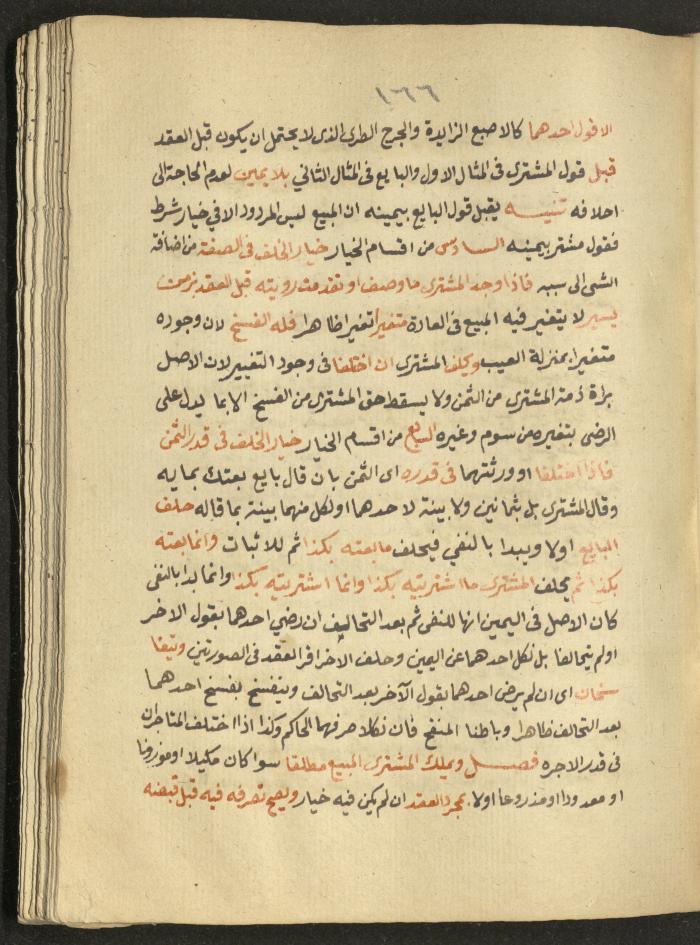 ١٦٦
الا قول احدهما كالاصبع الزايدة والجرح الطري الذي لا يحتمل ان يكون قبل العقد
قبل قول المشتري في المثال الاول والبايع في المثال الثاني بلا يمين لعدم الحاجة الى
احلافه تنبيه يقبل قول البايع بيمينه ان المبيع ليس المردود الا في خيار شرط
فقول مشتر بيمينه السادس من اقسام الخيار خيار الخلف في الصفة من اضافة
الشي الى سببه فاذا وجد المشتري ما وصف او تقدمت رويته قبل العقد بزمن
يسير لا يتغير فيه المبيع في العادة متغيرا تغيرا ظاهرا فله الفسخ لان وجوده
متغيرا بمنزلة العيب ويحلف المشتري ان اختلفا في وجود التغيير لان الاصل
براة ذمة المشتري من الثمن ولا يسقط حق المشتري من الفسخ الا بما يدل على
الرضى بتغيره من سوم وغيره السابع من اقسام الخيار خيار الخلف في قدر الثمن
فاذا اختلفا او ورثتهما في قدره اي الثمن بان قال بايع بعتك بمايه
وقال المشتري بل بثمانين ولا بينة لاحدهما او لكل منهما بينة بما قاله حلف
البايع اولا ويبدا بالنفي فيحلف ما بعته بكذا ثم للاثبات وانما بعته
بكذا ثم يحلف المشتري ما اشتريته بكذا وانما اشتريته بكذا وانما بدا بالنفي
كان الاصل في اليمين انها للنفي ثم بعد التحاليف ان رضي احدهما بقول الاخر
او لم يتحالفا بل نكل احدهما عن اليمين وحلف الاخر اقر العقد في الصورتين ويتفا
سخان اي ان لم يرضى احدهما بقول الآخر بعد التحالف وينفسخ بفسخ احدهما
بعد التحالف ظاهرا وباطنا فان نكلا صرفهما الحاكم وكذا اذا اختلف المتاجران
في قدر الاجره فصل ويملك المشتري المبيع مطلقا سوا كان مكيلا او موزونا
او معدودا او مذروعا اولا بمجرد العقد ان لم يكن فيه خيار ويصح تصرفه فيه قبل قبضه